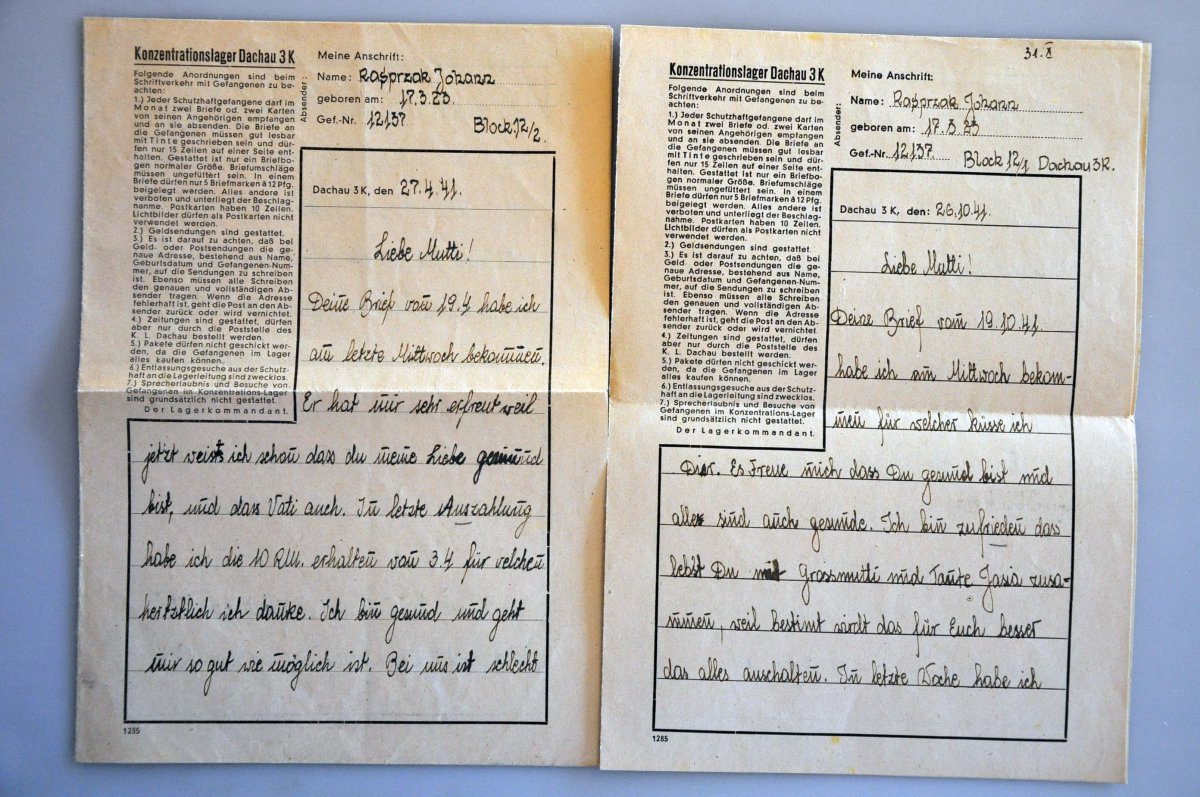 Konzentrationslager Dachau 3 K
Folgende Anordnungen sind beim
Schriftverkehr mit Gefangenen zu be-
achten:
1.) Jeder Schutzhaftgefangene darf im
Monat zwei Briefe od. zwei Karten
von seinen Angehörigen empfangen
und an sie absenden. Die Briefe an
die Gefangenen müssen gut lesbar
mit Tinte geschrieben sein und dür-
fen nur 15 Zeilen auf einer Seite ent-
halten. Gestattet ist nur ein Briefbo-
gen normaler Größe. Briefumschläge
müssen ungefüttert sein. In einem
Briefe dürfen nur 5 Briefmarken à 12 Pfg.
beigelegt werden. Alles andere ist
verboten und unterliegt der Beschlag-
nahme. Postkarten haben 10 Zeilen.
Lichtbilder dürfen als Postkarten nicht
verwendet werden.
2.) Geldsendungen sind gestattet.
3.) Es ist darauf zu achten, daß bei
Geld- oder Postsendungen die ge-
naue Adresse, bestehend aus Name,
Geburtsdatum und Gefangenen-Num-
mer, auf die Sendungen zu schreiben
ist. Ebenso müssen alle Schreiben
den genauen und vollständigen Ab-
sender tragen. Wenn die Adresse
fehlerhaft ist, geht die Post an den Ab-
sender zurück oder wird vernichtet.
4.) Zeitungen sind gestattet, dürfen
aber nur durch die Poststelle des
K. L. Dachau bestellt werden.
5.) Pakete dürfen nicht geschickt wer-
den, da die Gefangenen im Lager
alles kaufen können.
6.) Entlassungsgesuche aus der Schutz-
haft an die Lagerleitung sind zwecklos.
7.) Sprecherlaubnis und Besuche von
Gefangenen im Konzentrations-Lager
sind grundsätzlich nicht gestattet.
Der Lagerkommandant.
Absender:
Meine Anschrift:
Name: Kasprzak Johann
geboren am: 17.3.23.
Gef.-Nr. 12137 Block.12/2.
Dachau 3 K, den 27.4.41.
Liebe Mutti!
Deine Brief vom 19.4 habe ich
am letzte Mittwoch bekommen.
Er hat mir sehr erfreut weil
jetzt weist ich schon dass du meine Liebe gesund
bist, und dass Vati auch. In letzte Auszahlung
habe ich die 10 RM. erhalten vom 3.4 für velchen
hertzlich ich danke. Ich bin gesund und geht
mir so gut wie möglich ist. Bei uns ist schlecht
1285
31.X
Konzentrationslager Dachau 3 K
Folgende Anordnungen sind beim
Schriftverkehr mit Gefangenen zu be-
achten:
1.) Jeder Schutzhaftgefangene darf im
Monat zwei Briefe od. zwei Karten
von seinen Angehörigen empfangen
und an sie absenden. Die Briefe an
die Gefangenen müssen gut lesbar
mit Tinte geschrieben sein und dür-
fen nur 15 Zeilen auf einer Seite ent-
halten. Gestattet ist nur ein Briefbo-
gen normaler Größe. Briefumschläge
müssen ungefüttert sein. In einem
Briefe dürfen nur 5 Briefmarken à 12 Pfg.
beigelegt werden. Alles andere ist
verboten und unterliegt der Beschlag-
nahme. Postkarten haben 10 Zeilen.
Lichtbilder dürfen als Postkarten nicht
verwendet werden.
2.) Geldsendungen sind gestattet.
3.) Es ist darauf zu achten, daß bei
Geld- oder Postsendungen die ge-
naue Adresse, bestehend aus Name,
Geburtsdatum und Gefangenen-Num-
mer, auf die Sendungen zu schreiben
ist. Ebenso müssen alle Schreiben
den genauen und vollständigen Ab-
sender tragen. Wenn die Adresse
fehlerhaft ist, geht die Post an den Ab-
sender zurück oder wird vernichtet.
4.) Zeitungen sind gestattet, dürfen
aber nur durch die Poststelle des
K. L. Dachau bestellt werden.
5.) Pakete dürfen nicht geschickt wer-
den, da die Gefangenen im Lager
alles kaufen können.
6.) Entlassungsgesuche aus der Schutz-
haft an die Lagerleitung sind zwecklos.
7.) Sprecherlaubnis und Besuche von
Gefangenen im Konzentrations-Lager
sind grundsätzlich nicht gestattet.
Der Lagerkommandant.
Absender:
Meine Anschrift:
Name: Kasprzak Johann
geboren am: 17.3.23
Gef.-Nr. 12137. Block 12/1 Dachau 3K.
Dachau 3 K, den: 26.10.41.
Liebe Mutti!
Deine Brief vom 19.10.41.
habe ich am Mittwoch bekom-
men für welcher küsse ich
Dir. Es Freue mich dass Du gesund bist und
alle sind auch gesunde. Ich bin zufrieden das
lebst Du mit Grossmutti und Tante Jasia zusa-
mmen, weil bestimt wirdt das für Euch besser
das alles aushalten. In letzte Woche habe ich
1285